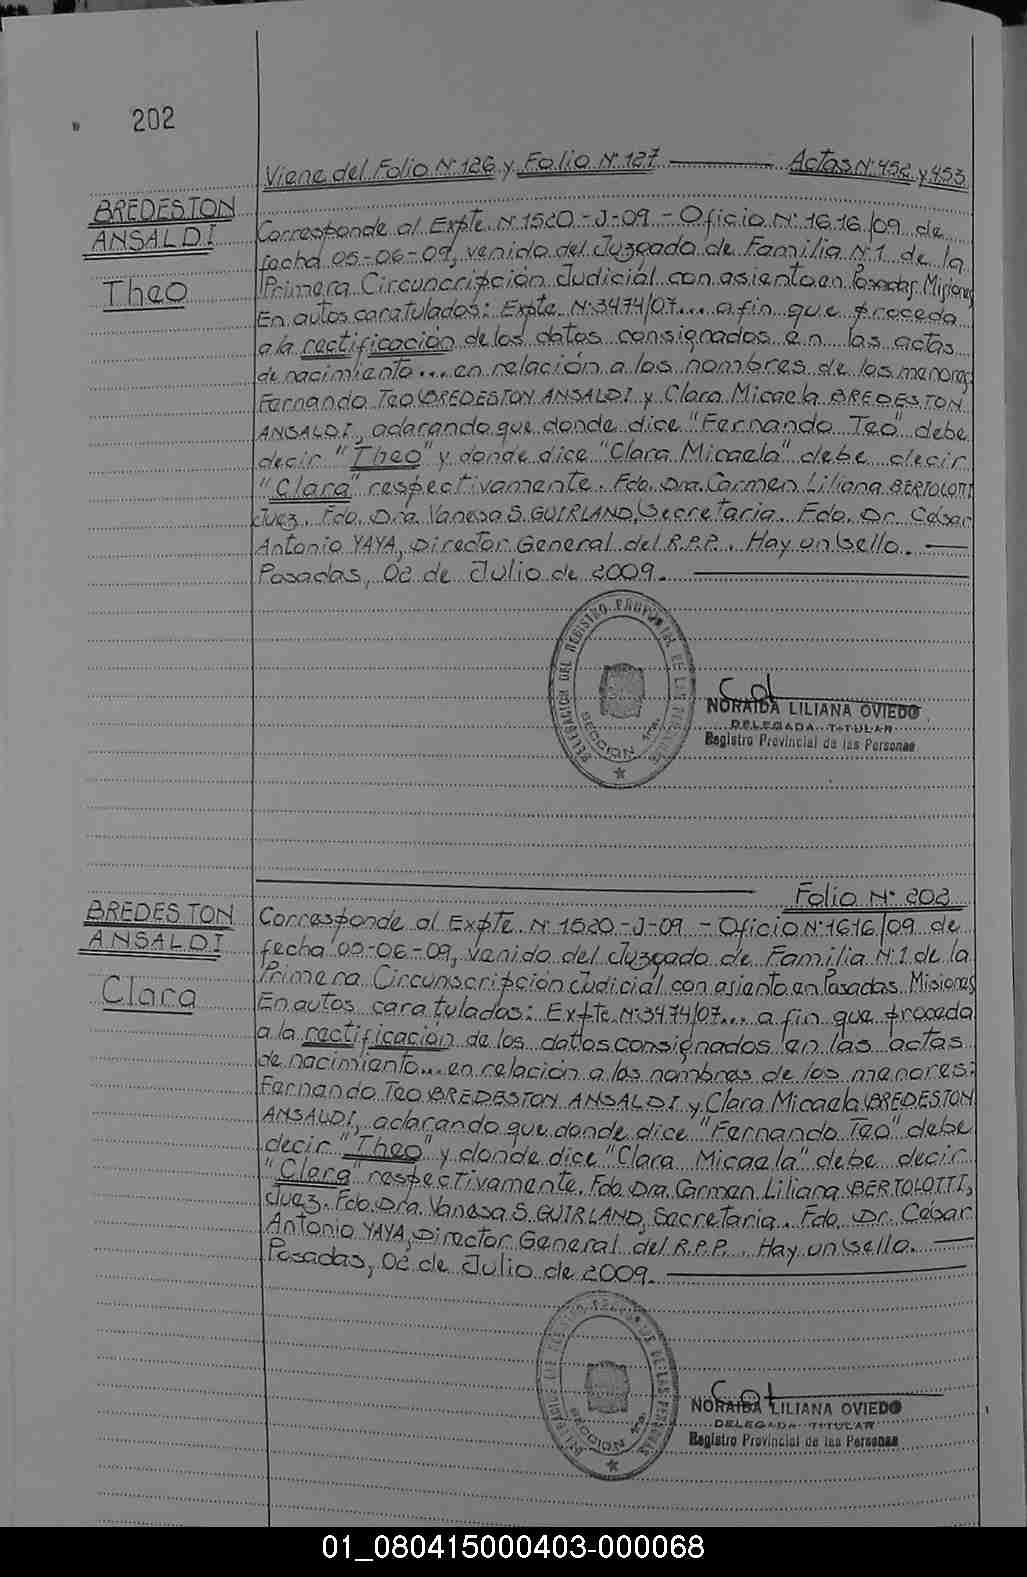 202
Viene del Folio Nº 126 y Folio Nº 127 Actas Nº 452 y 453
BREDESTON
ANSALDI
Theo
Corresponde al Expte. Nº 1520-J-09 - Oficio Nº 1616/09 de
fecha 05-06-09, venido del Juzgado de Familia Nº 1 de la
Primera Circuncripción Judicial con asiento en Posadas, Misiones
En autos caratulados: Expte. Nº 3474/07... a fin que proceda
a la rectificación de los datos consignados en las actas
de nacimiento... en relación a los nombres de los menores
Fernando Teo BREDESTON ANSALDI y Clara Micaela BREDESTON
ANSALDI, aclarando que donde dice "Fernando Teo" debe
decir "Theo" y donde dice "Clara Micaela" debe decir
"Clara" respectivamente. Fdo. Dra. Carmen Liliana BERTOLOTTI
Juez. Fdo. Dra. Vanesa S. GUIRLAND, Secretaria. Fdo. Dr. César
Antonio YAYA, Director General del R.P.P. Hay un sello.
Posadas, 02 de Julio de 2009.
DELEGACION DEL REGISTRO PROVINCIAL DE LAS PERSONAS
SECCION 1ra.
NORAIDA LILIANA OVIEDO
DELEGADA TITULAR
Registro Provincial de las Personas
Folio Nº 202
BREDESTON
ANSALDI
Clara
Corresponde al Expte. Nº 1520-J-09 - Oficio Nº 1616/09 de
fecha 05-06-09, venido del Juzgado de Familia Nº 1 de la
Primera Circunscripción Judicial con asiento en Posadas, Misiones
En autos caratulados: Expte. Nº 3474/07... a fin que proceda
a la rectificación de los datos consignados en las actas
de nacimiento... en relación a los nombres de los menores:
Fernando Teo BREDESTON ANSALDI y Clara Micaela BREDESTON
ANSALDI, aclarando que donde dice "Fernando Teo" debe
decir "Theo" y donde dice "Clara Micaela" debe decir
"Clara" respectivamente. Fdo. Dra. Carmen Liliana BERTOLOTTI,
Juez. Fdo. Dra. Vanesa S. GUIRLAND, Secretaria. Fdo. Dr. César
Antonio YAYA, Director General del R.P.P. Hay un sello.
Posadas, 02 de Julio de 2009.
SECCION 1ra.
NORAIDA LILIANA OVIEDO
DELEGADA TITULAR
Registro Provincial de las Personas
01_080415000403-000068